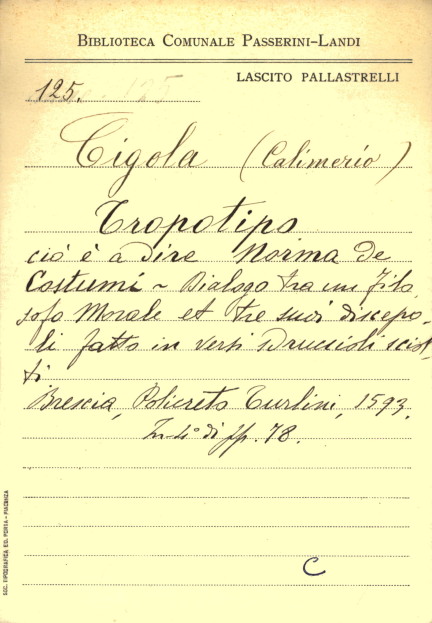 BIBLIOTECA COMUNALE PASSERINI-LANDI
LASCITO PALLASTRELLI
125.
Cigola (Calimerio)
Tropotipo
ciò è a dire Norma de
Costumi - Dialogo tra un filo
sofo Morale et tre suoi discepo-
li fatto in versi sdruccioli sciol
ti
Brescia, Policreto Turlini, 1593.
In-4° di ff. 78.
C
SOC. TIPOGRAFICA ED. PORTA - PIACENZA